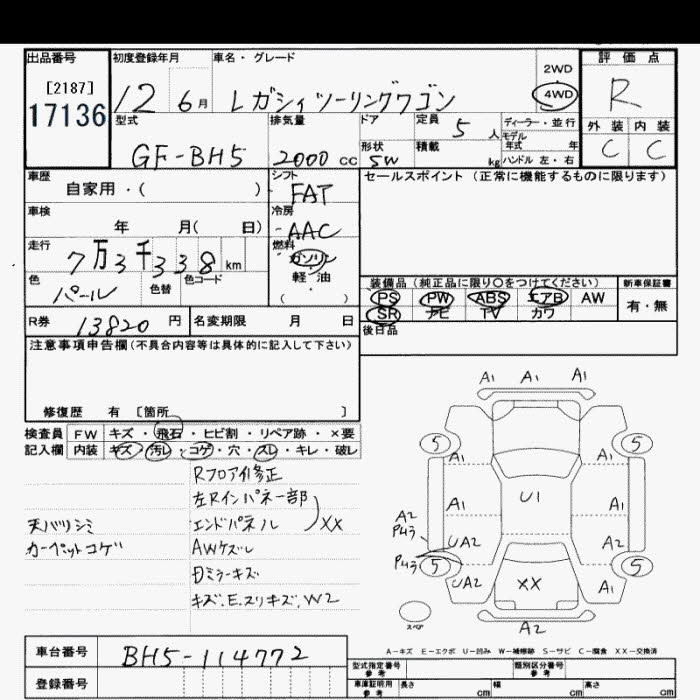 出品番号 初度登録年月 車名・グレード 2WD 評価点
[2187] 12 6月 レガシィツーリングワゴン 4WD R
17136 型式 排気量 ドア 定員 5人 ディーラー・並行 外装 内装
モデル年式 年
GF-BH5 2000cc 形状 SW 積載 kg ハンドル 左・右 C C
車歴 シフト セールスポイント (正常に機能するものに限ります)
自家用・( ) FAT
車検 冷房
年 月( 日) AAC
走行 燃料
7万3千338km ガソリン
色 色替 色コード 軽・油 装備品 (純正品に限り○をつけてください) 新車保証書
パール ( ) PS PW ABS エアB AW 有・無
R券 13820円 名変期限 月 日 SR ナビ TV カワ
後日品
注意事項申告欄(不具合内容等は具体的に記入して下さい)
修復歴 有 [箇所 ]
A1 A1 A1
検査員 FW キズ・飛石・ヒビ割・リペア跡・×要
記入欄 内装 キズ・汚レ・コゲ・穴・スレ・キレ・破レ
5 5
A1 A1
Rフロア修正
左Rインパネ一部
A1 U1 A1
天バリシミ エンドパネル XX
A2
カーペットコゲ AWケズレ
UA2 A2
5 5
ミラーキズ
UA2 XX A1
キズ.E.スリキズ.W2
スペア A2
A-キズ E-エクボ U-凹み W-補修跡 S-サビ C-腐食 XX-交換済
車台番号 BH5-114772
登録番号
型式指定番号 参考 類別区分番号 参考
車庫証明用 参考 長さ cm 幅 cm 高さ cm